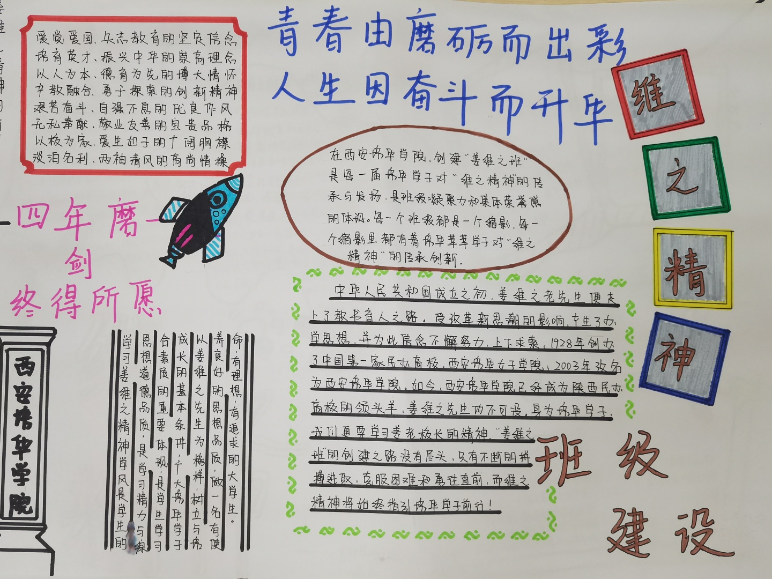 爱党爱国、矢志教育的坚定信念
培育英才、振兴中华的崇高理想
以人为本、德育为先的博大情怀
学教融合、勇于探索的创新精神
艰苦奋斗、自强不息的优良作风
无私奉献、敬业友善的思贵品格
以校为家、爱生如子的广阔胸襟
淡泊名利、两袖清风的高尚情操
青春由磨砺而出彩
人生因奋斗而升华
维
之
精
神
在西安培华学院,创建"姜维之班"
是每一届培华学子对"维之精神"的传
承与发扬,是班级凝聚力和集体荣誉感
的体现。每一个班级都是一个缩影,每一
个缩影里都有着培华莘莘学子对"维之
精神"的传承创新。
四年磨一
剑
终得所愿
中华人民共和国成立之初,姜维之先生便走
上了教书育人之路。受改革新思潮的影响,产生了办
学思想,并为此信念不懈努力,上下求索,1928年创办
了中国第一家民办高校,西安培华女子学院,2003年改名
为西安培华学院,如今,西安培华学院已经成为陕西民办
高校的领头羊,姜维之先生功不可没,身为培华学子,
我们更要学习姜老校长的精神"姜维之
班的创建之路没有尽头,只有不断的精
精进取,克服困难和勇往直前,而维之
精神将始终指引培华学子前行!
西安培华学院
命、有理想、有追求的大学生。
养良好的思想品质,做一名有使
以姜维之先生为榜样,树立与培
成长的基本条件,个大培华学子
合素质的重要体现,是学生学习
思想道德品质,是学习精力与综
学习姜维之精神学风是学生的
班级
建设